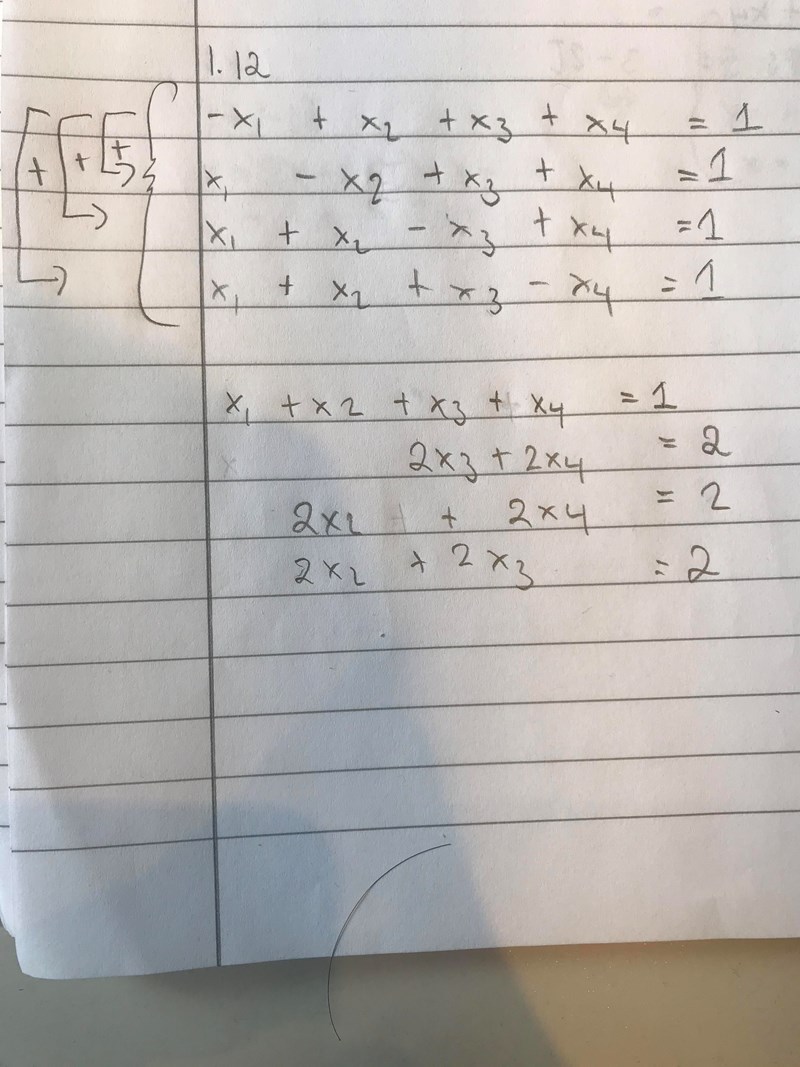 1.12
-x₁ + x₂ + x₃ + x₄ = 1
x₁ - x₂ + x₃ + x₄ = 1
x₁ + x₂ - x₃ + x₄ = 1
x₁ + x₂ + x₃ - x₄ = 1
+ + +
x₁ + x₂ + x₃ + x₄ = 1
2x₃ + 2x₄ = 2
2x₂ + 2x₄ = 2
2x₂ + 2x₃ = 2